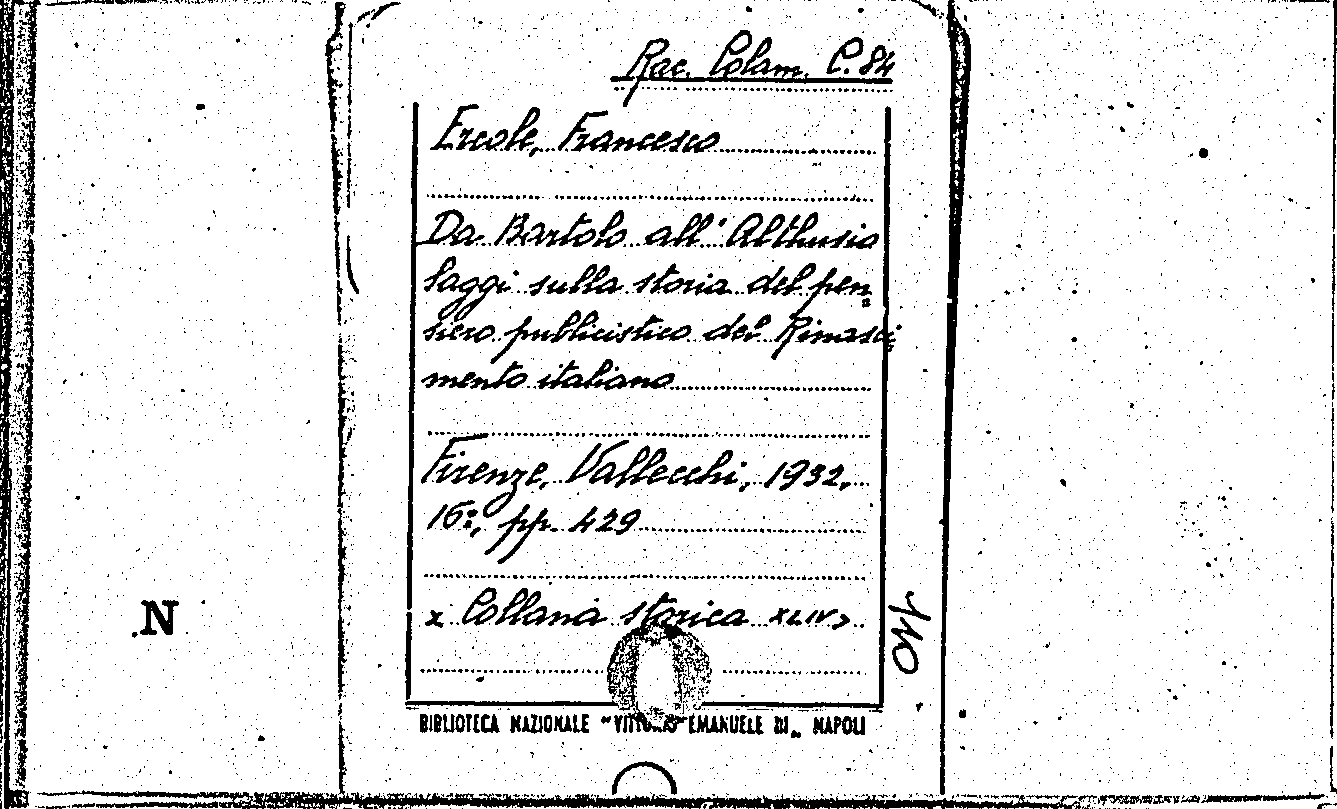 Rac. Colam. C. 84
Ercole, Francesco
Da Bartolo all'Althusio
Saggi sulla storia del pen=
siero publicistico del Rinasci=
mento italiano
Firenze, Vallecchi, 1932,
16º, pp. 429
« Collana storica XLIV»
110
.N
BIBLIOTECA NAZIONALE "VITTORIO EMANUELE III„ NAPOLI